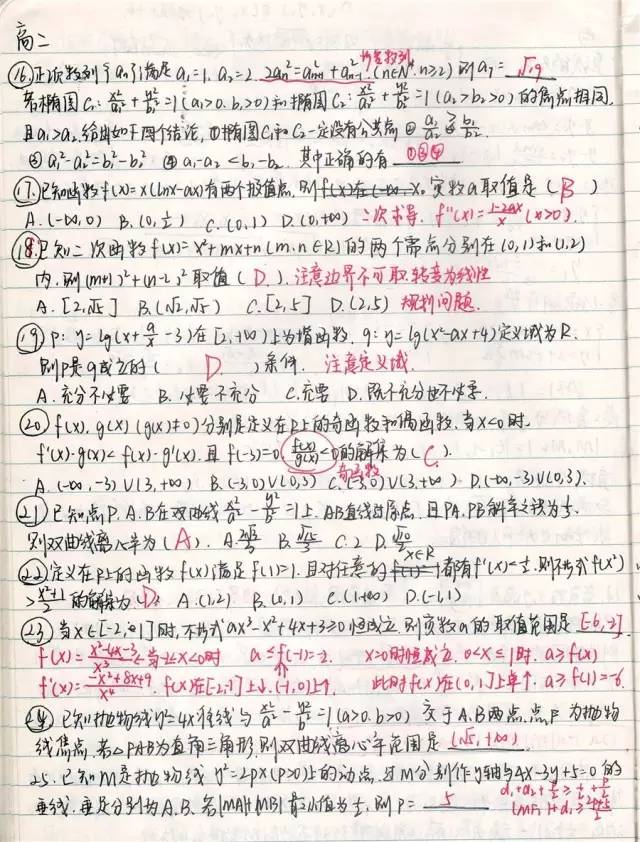 高二
等差数列
⑯正项数列{an}满足a₁=1, a₂=2, 2an²=a²n+1+a²n-1 (n∈N*, n≥2) 则a₇=√19
若椭圆C₁: x²/a₁²+y²/b₁²=1(a₁>0,b₁>0)和椭圆C₂: x²/a₂²+y²/b₂²=1(a₂>b₂>0)的焦点相同,
且a₁>a₂,给出如下四个结论,①椭圆C₁和C₂一定没有公共点 ② a₁/a₂ > b₁/b₂
③a₁²-a₂²=b₁²-b₂² ④a₁-a₂<b₁-b₂. 其中正确的有 ①③④
⑰已知函数f(x)=x(lnx-ax)有两个极值点,则 实数a取值是( B )
A.(-∞,0) B.(0,½) C.(0,1) D.(0,+∞) 二次求导. f''(x)=(1-2ax)/x (x>0).
⑱已知二次函数f(x)=x²+mx+n(m,n∈R)的两个零点分别在(0,1)和(1,2)
内,则(m+1)²+(n-2)²取值( D ). 注意边界不可取 转变为线性
A.[2,√5] B.(√2,√5) C.[2,5] D.(2,5) 规划问题.
⑲P: y=lg(x+a/x-3)在[2,+∞)上为增函数, q: y=lg(x²-ax+4)定义域为R.
则p是q成立的( D )条件. 注意定义域.
A.充分不必要 B.必要不充分 C.充要 D.既不充分也不必要.
⑳f(x),g(x)(g(x)≠0)分别是定义在R上的奇函数和偶函数,当x<0时,
f'(x)·g(x)<f(x)·g'(x),且f(-3)=0, f(x)/g(x)<0的解集为( C ).
奇函数
A.(-∞,-3)∪(3,+∞) B.(-3,0)∪(0,3) C.(-3,0)∪(3,+∞) D.(-∞,-3)∪(0,3).
㉑已知点P,A,B在双曲线x²/a²-y²/b²=1上,AB直线过原点,且PA,PB斜率之积为⅓,
则双曲线离心率为( A ). A.2√3/3 B.√15/3 C.2 D.√10/2
x∈R
㉒定义在R上的函数f(x)满足f(1)=1,且对任意的 都有f'(x)<½,则不等式f(x²)
>(x²+1)/2的解集为 D. A.(1,2) B.(0,1) C.(1,+∞) D.(-1,1)
㉓当x∈[-2,1]时,不等式ax³-x²+4x+3≥0恒成立,则实数a的取值范围是[-6,-2]
f(x)=(x²-4x-3)/x³ ←当-2≤x<0时 a≤f(-1)=-2. x=0时恒成立. 0<x≤1时, a≥f(x)
f'(x)=(-x²+8x+9)/x⁴. f(x)在[-2,-1]上↓.(-1,0)上↑. 此时f(x)在(0,1]上单↑. a≥f(1)=-6.
㉔已知抛物线y²=4x准线与x²/a²-y²/b²=1(a>0,b>0)交于A.B两点,点F为抛物
线焦点,若△FAB为直角三角形,则双曲线离心率范围是 (√5,+∞)
25.已知M是抛物线y²=2px(p>0)上的动点,过M分别作y轴与4x-3y+5=0的
垂线,垂足分别为A.B.若|MA|+|MB|最小值为½,则p= 5 d₁+d₂+p/2≥½+p/2
|MF|+d₂≥(2p+5)/5